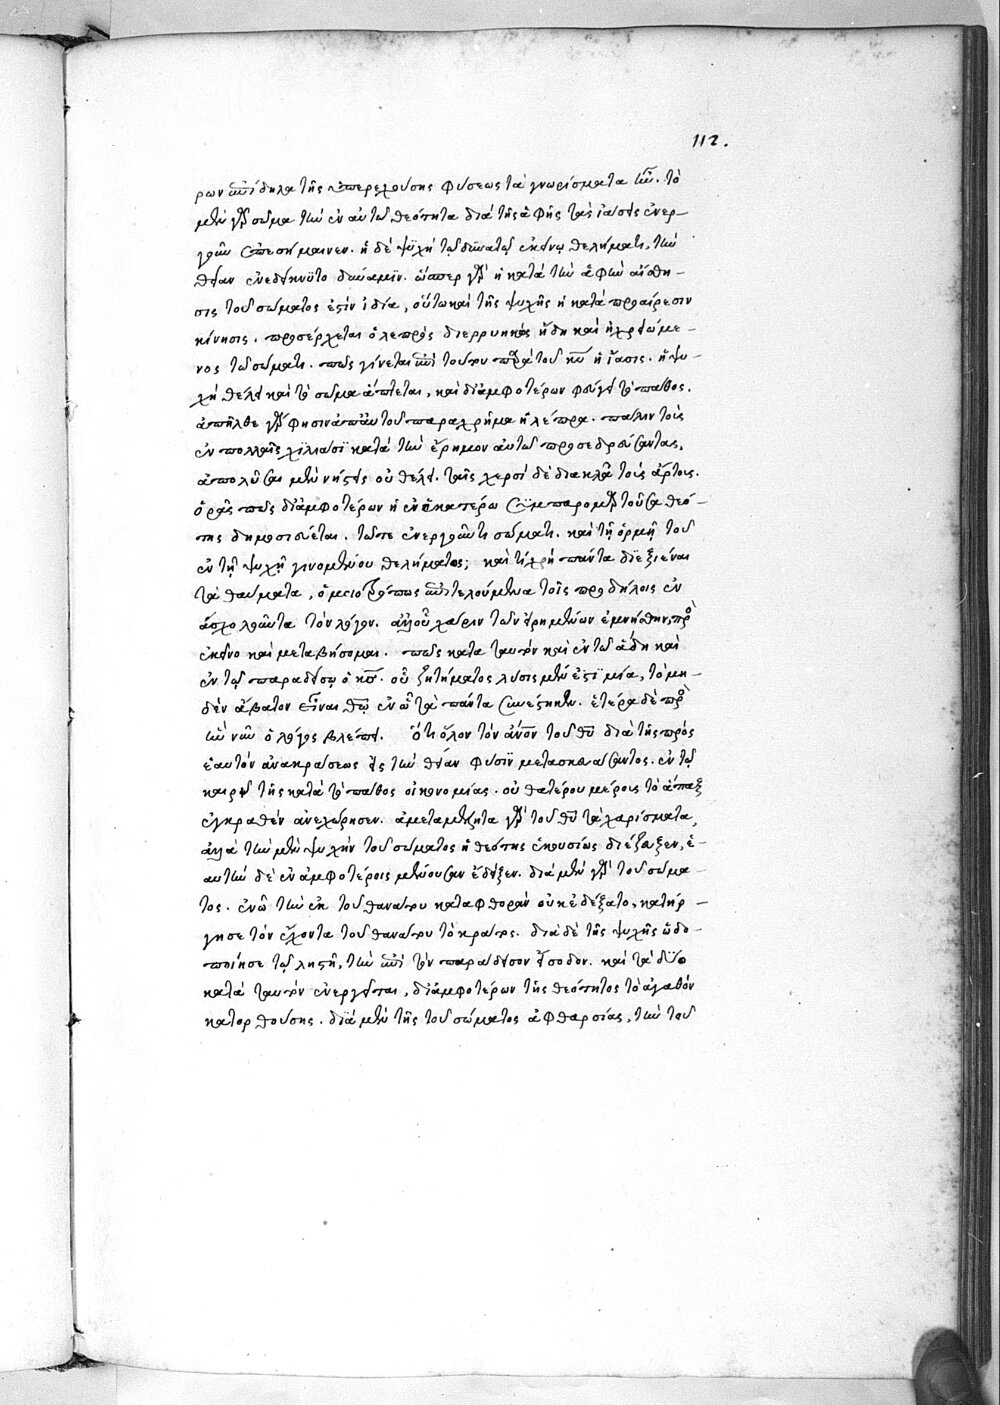 112.
ρων ἐπίδηλα τῆς ὑπερεχούσης φύσεως τὰ γνωρίσματα ἦν. τὸ
μὲν γὰρ σῶμα τὴν ἐν αὐτῷ θεότητα διὰ τῆς ἁφῆς τὰς ἰάσεις ἐνερ-
γοῦν ἐπεσήμαινεν. ἡ δὲ ψυχὴ τῷ δυνατῷ ἐκείνῳ θελήματι, τὴν
θείαν ἐνεδείκνυτο δύναμιν. ὥσπερ γὰρ ἡ κατὰ τὴν ἁφὴν αἴσθη-
σις τοῦ σώματος ἐστὶν ἰδία, οὕτω καὶ τῆς ψυχῆς ἡ κατὰ προαίρεσιν
κίνησις. προσέρχεται ὁ λεπρὸς διερρυηκὼς ἤδη καὶ ἠχρειωμέ-
νος τῷ σώματι. πῶς γίνεται ἐπὶ τούτου παρὰ τοῦ κυ ἡ ἴασις. ἡ ψυ-
χὴ θέλει καὶ τὸ σῶμα ἅπτεται, καὶ δι' ἀμφοτέρων φεύγει τὸ πάθος.
ἀπῆλθε γὰρ φησὶν ἀπ' αὐτοῦ παραχρῆμα ἡ λέπρα. πάλιν τοὺς
ἐν πολλαῖς χιλιάσι κατὰ τὴν ἔρημον αὐτῷ προσεδρεύσαντας,
ἀπολῦσαι μὲν νήστεις οὐ θέλει. ταῖς χερσὶ δὲ διακλᾷ τοὺς ἄρτους.
ὁρᾷς πῶς δι' ἀμφοτέρων ἡ ἐν ἑκατέρῳ συμπαρομαρτοῦσα θεό-
της δημοσιεύεται. τῷ τε ἐνεργοῦντι σώματι. καὶ τῇ ὁρμῇ τοῦ
ἐν τῇ ψυχῇ γινομένου θελήματος; καὶ τί χρὴ πάντα διεξιέναι
τὰ θαύματα, ὁμοιοτρόπως ἐπιτελούμενα τοῖς προδήλοις ἐν
ἀσχολοῦντα τὸν λόγον. ἀλλ' οὗ χάριν τῶν εἰρημένων ἐμνήσθην, πρὸς
ἐκεῖνο καὶ μεταβήσομαι. πῶς κατὰ ταυτὸν καὶ ἐν τῷ ἅδῃ καὶ
ἐν τῷ παραδείσῳ ὁ κς. οὗ ζητήματος λύσις μὲν ἐστὶ μία, τὸ μη-
δὲν ἄβατον εἶναι θῷ ἐν ᾧ τὰ πάντα συνέστηκεν. ἑτέρα δὲ πρὸς
ἣν νῦν ὁ λόγος βλέπει. ὅτι ὅλον τὸν ἄνον τοῦ θυ διὰ τῆς πρὸς
ἑαυτὸν ἀνακράσεως εἰς τὴν θείαν φύσιν μετασκευάσαντος. ἐν τῷ
καιρῷ τῆς κατὰ τὸ πάθος οἰκονομίας. οὐ θατέρου μέρους τὸ ἅπαξ
ἐγκραθὲν ἀνεχώρησεν. ἀμεταμέλητα γὰρ τοῦ θυ τὰ χαρίσματα,
ἀλλὰ τὴν μὲν ψυχὴν τοῦ σώματος ἡ θεότης ἑκουσίως διέζευξεν, ἑ-
αυτὴν δὲ ἐν ἀμφοτέροις μένουσαν ἔδειξεν. διὰ μὲν γὰρ τοῦ σώμα-
τος. ἐν ᾧ τὴν ἐκ τοῦ θανάτου καταφθορὰν οὐκ ἐδέξατο, κατήρ-
γησε τὸν ἔχοντα τοῦ θανάτου τὸ κράτος. διὰ δὲ τῆς ψυχῆς ὡδο-
ποίησε τῷ λῃστῇ, τὴν ἐπὶ τὸν παράδεισον εἴσοδον. καὶ τὰ δύο
κατὰ ταυτὸν ἐνεργεῖται, δι' ἀμφοτέρων τῆς θεότητος τὸ ἀγαθὸν
κατορθούσης. διὰ μὲν τῆς τοῦ σώματος ἀφθαρσίας, τὴν τοῦ